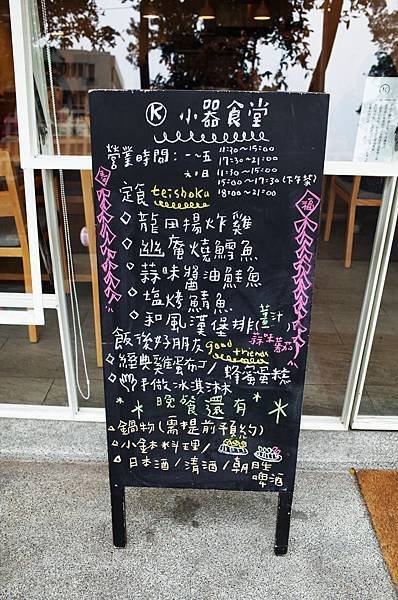 K 小器食堂
營業時間：一~五 11:30~15:00
17:30~21:00
六日 11:30~15:00
15:00~17:30(下午茶)
18:00~21:00
定食 teishoku
龍田揚炸雞
幽庵燒鱈魚
蒜味醬油鮭魚
塩烤鯖魚
和風漢堡排(薑汁
蒜味蕃茄)
飯後好朋友 good friends
經典雞蛋布丁/蜂蜜蛋糕
手做冰淇淋
晚餐還有
鍋物(需提前預約)
小鉢料理/
日本酒/清酒/朝日生
啤酒
福